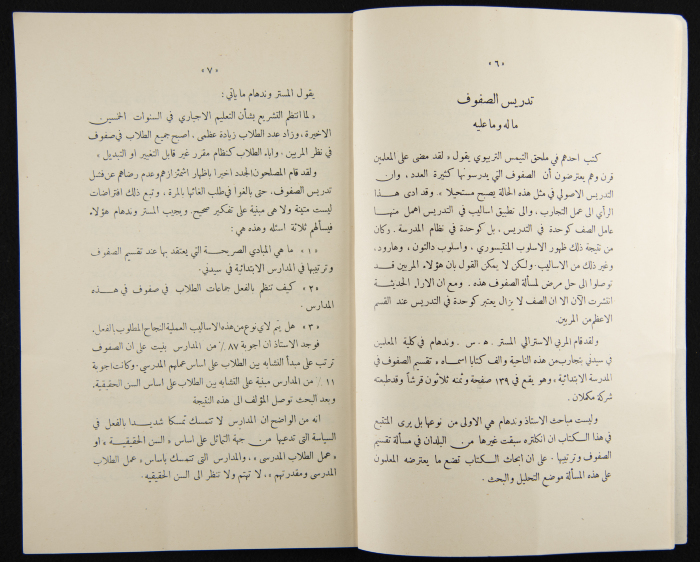 «٦»
تدريس الصفوف
ماله وما عليه
كتب احدهم في ملحق التيمس التربوي يقول « لقد مضى على المعلمين
قرن وهم يعترضون أن الصفوف التي يدرسونها كثيرة العدد ، وان
التدريس الاصولي في مثل هذه الحالة يصبح مستحيلا » وقد ادى هذا
الرأي الى عمل التجارب . والى تطبيق اساليب في التدريس اهمل منها
عامل الصف كوحدة في التدريس ، بل كوحدة في نظام المدرسة . وكان
من نتيجة ذلك ظهور الاسلوب المنتيسوري ، واسلوب دالتون ، وهارود .
وغير ذلك من الاساليب . ولكن لا يمكن القول بان هؤلاء المربين قد
توصلوا الى حل مرض لمسألة الصفوف هذه . ومع ان الاراء الحديثة
انتشرت الآن الا ان الصف لا يزال يعتبر كوحدة في التدريس عند القسم
الاعظم من المربين .
ولقد قام المربي الاسترالي المستر . ه . س . وندهام في كلية المعلمين
في سيدني بتجارب من هذه الناحية والف كتابا اسماه « تقسيم الصفوف في
المدرسة الابتدائية » وهو يقع في ١٣٩ صفحة وثمنه ثلاثون قرشاً وقد طبعته
شركة مكملان .
وليست مباحث الاستاذ وندهام هي الاولى من نوعها بل يرى المتتبع
في هذا الكتاب ان انكلتره سبقت غيرها من البلدان في مسألة تقسيم
الصفوف وترتيبها . على ان ابحاث الكتاب تضع ما يعترضه المعلمون
على هذه المسألة موضع التحليل والبحث .
«٧»
يقول المستر وندهام ما يأتي :
« لما انتظم التشريع بشأن التعليم الاجباري في السنوات الخمسين
الاخيرة ، وزاد عدد الطلاب زيادة عظمى . اصبح جميع الطلاب في صفوف
في نظر المربين . واباء الطلاب كنظام مقرر غير قابل التغيير او التبديل »
ولقد قام المصلحون الجدد اخيرا باظهار اشمئزازهم وعدم رضاهم عن فشل
تدريس الصفوف . حتى بالغوا في طلب الغائها بالمرة ، وتبع ذلك افتراضات
ليست متينة ولا هي مبنية على تفكير صحيح . ويجيب المستر وندهام هؤلاء
فيسألهم ثلاثة اسئلة وهذه هي :
«١» ما هي المبادي الصريحة التي يعتقد بها عند تقسيم الصفوف
وترتيبها في المدارس الابتدائية في سيدني .
«٢» كيف تنظم بالفعل جماعات الطلاب في صفوف في هذه
المدارس .
«٣» هل يتم لاي نوع من هذه الاساليب العملية النجاح المطلوب بالفعل .
فوجد الاستاذ ان اجوبة ٨٧ ٪ من المدارس بنيت على ان الصفوف
ترتب على مبدأ التشابه بين الطلاب على اساس عملهم المدرسي . وكانت اجوبة
١١ ٪ من المدارس مبنية على التشابه بين الطلاب على اساس السن الحقيقية .
وبعد البحث توصل المؤلف الى هذه النتيجة
انه من الواضح ان المدارس لا تتمسك تمسكا شديدا بالفعل في
السياسة التي تدعيها من جهة التماثل على اساس « السن الحقيقية » او
« عمل الطلاب المدرسي » ، والمدارس التي تتمسك باساس « عمل الطلاب
المدرسي ومقدرتهم » ، لا تهتم ولا تنظر الى السن الحقيقيه .